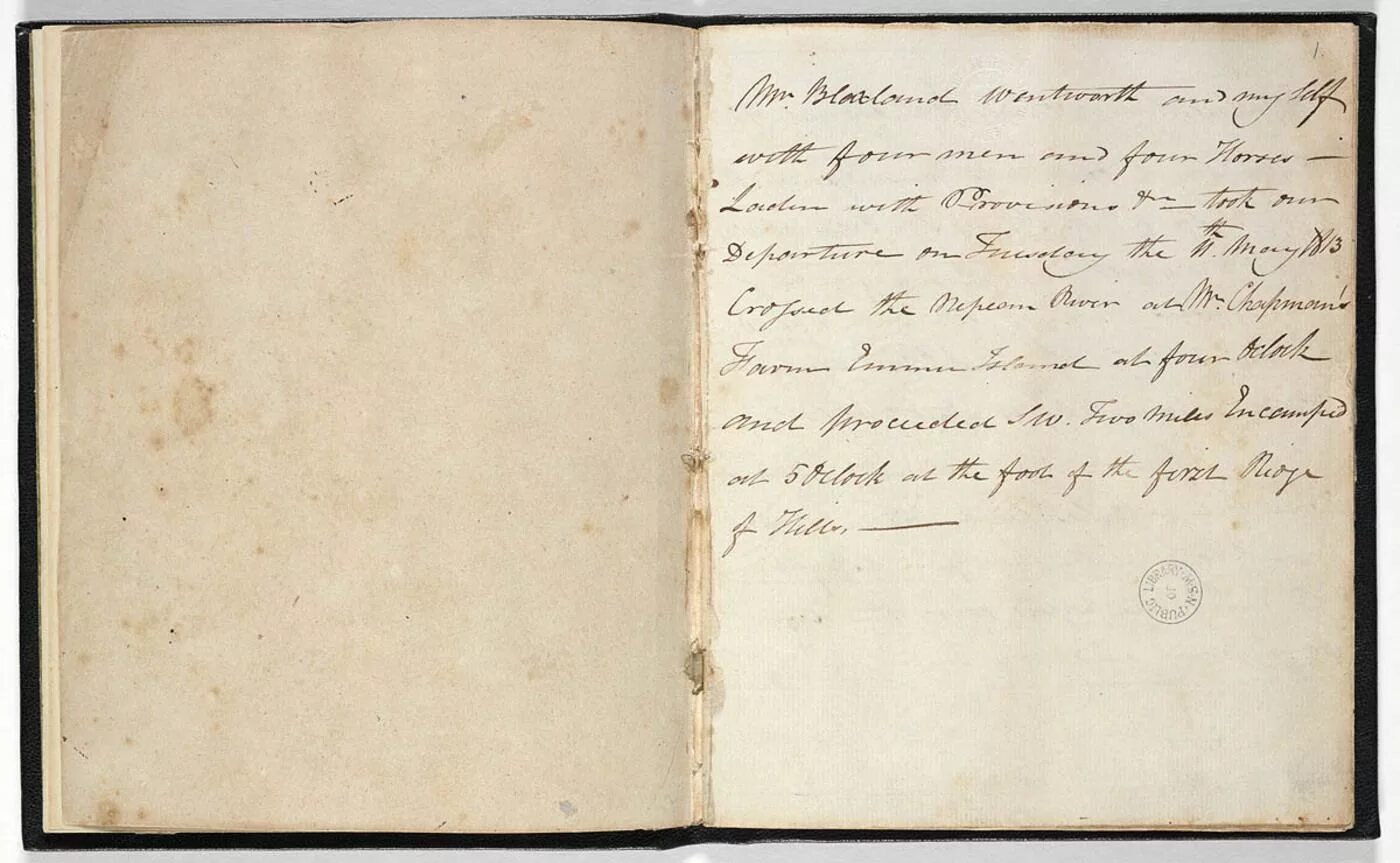 1.
Mr. Blaxland Wentworth and myself
with four men and four Horses —
Laden with Provisions &c — took our
Departure on Tuesday the 11th. May 1813
Crossed the Nepean River at Mr. Chapman's
Farm Emmu Island at four Oclock
and proceeded SW. Two miles Encamped
at 5 Oclock at the foot of the first Ridge
of Hills. —
PUBLIC LIBRARY N.S.W.